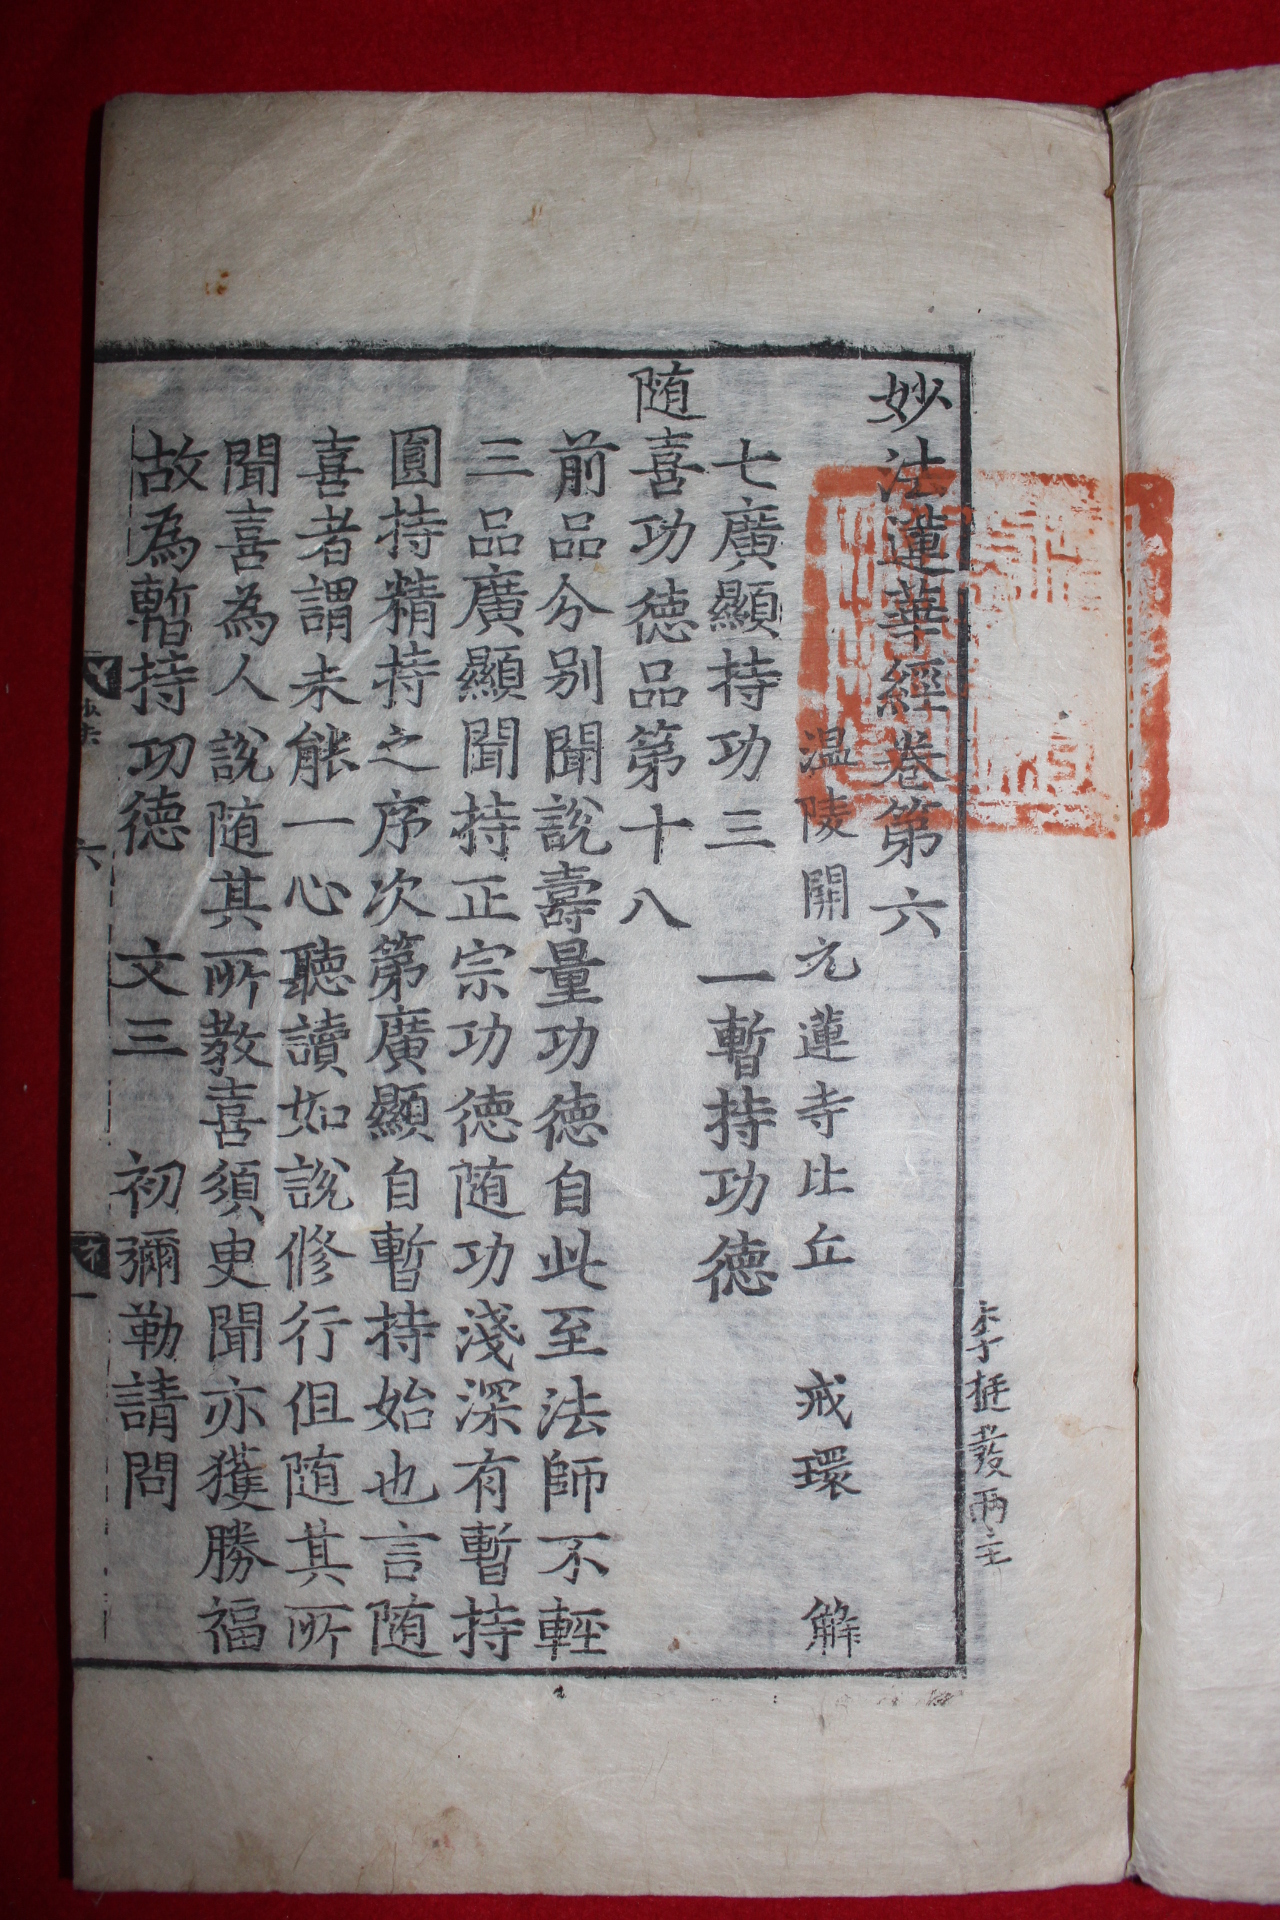 妙法蓮華經卷第六
温陵開元蓮寺比丘 戒環 解
七廣顯持功三 一暫持功德
随喜功德品第十八
前品分别聞說壽量功德自此至法師不輕
三品廣顯聞持正宗功德随功淺深有暫持
圓持精持之序次第廣顯自暫持始也言随
喜者謂未能一心聽讀如說修行但随其所
聞喜為人說随其所教喜須臾聞亦獲勝福
故為暫持功德 文三 初彌勒請問
李挺發兩主
妙法
六
一